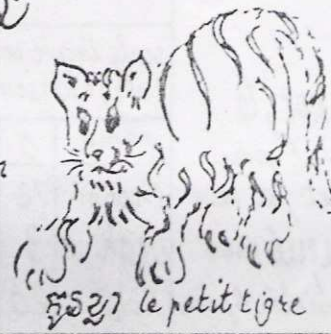 កូនខ្លា le petit tigre